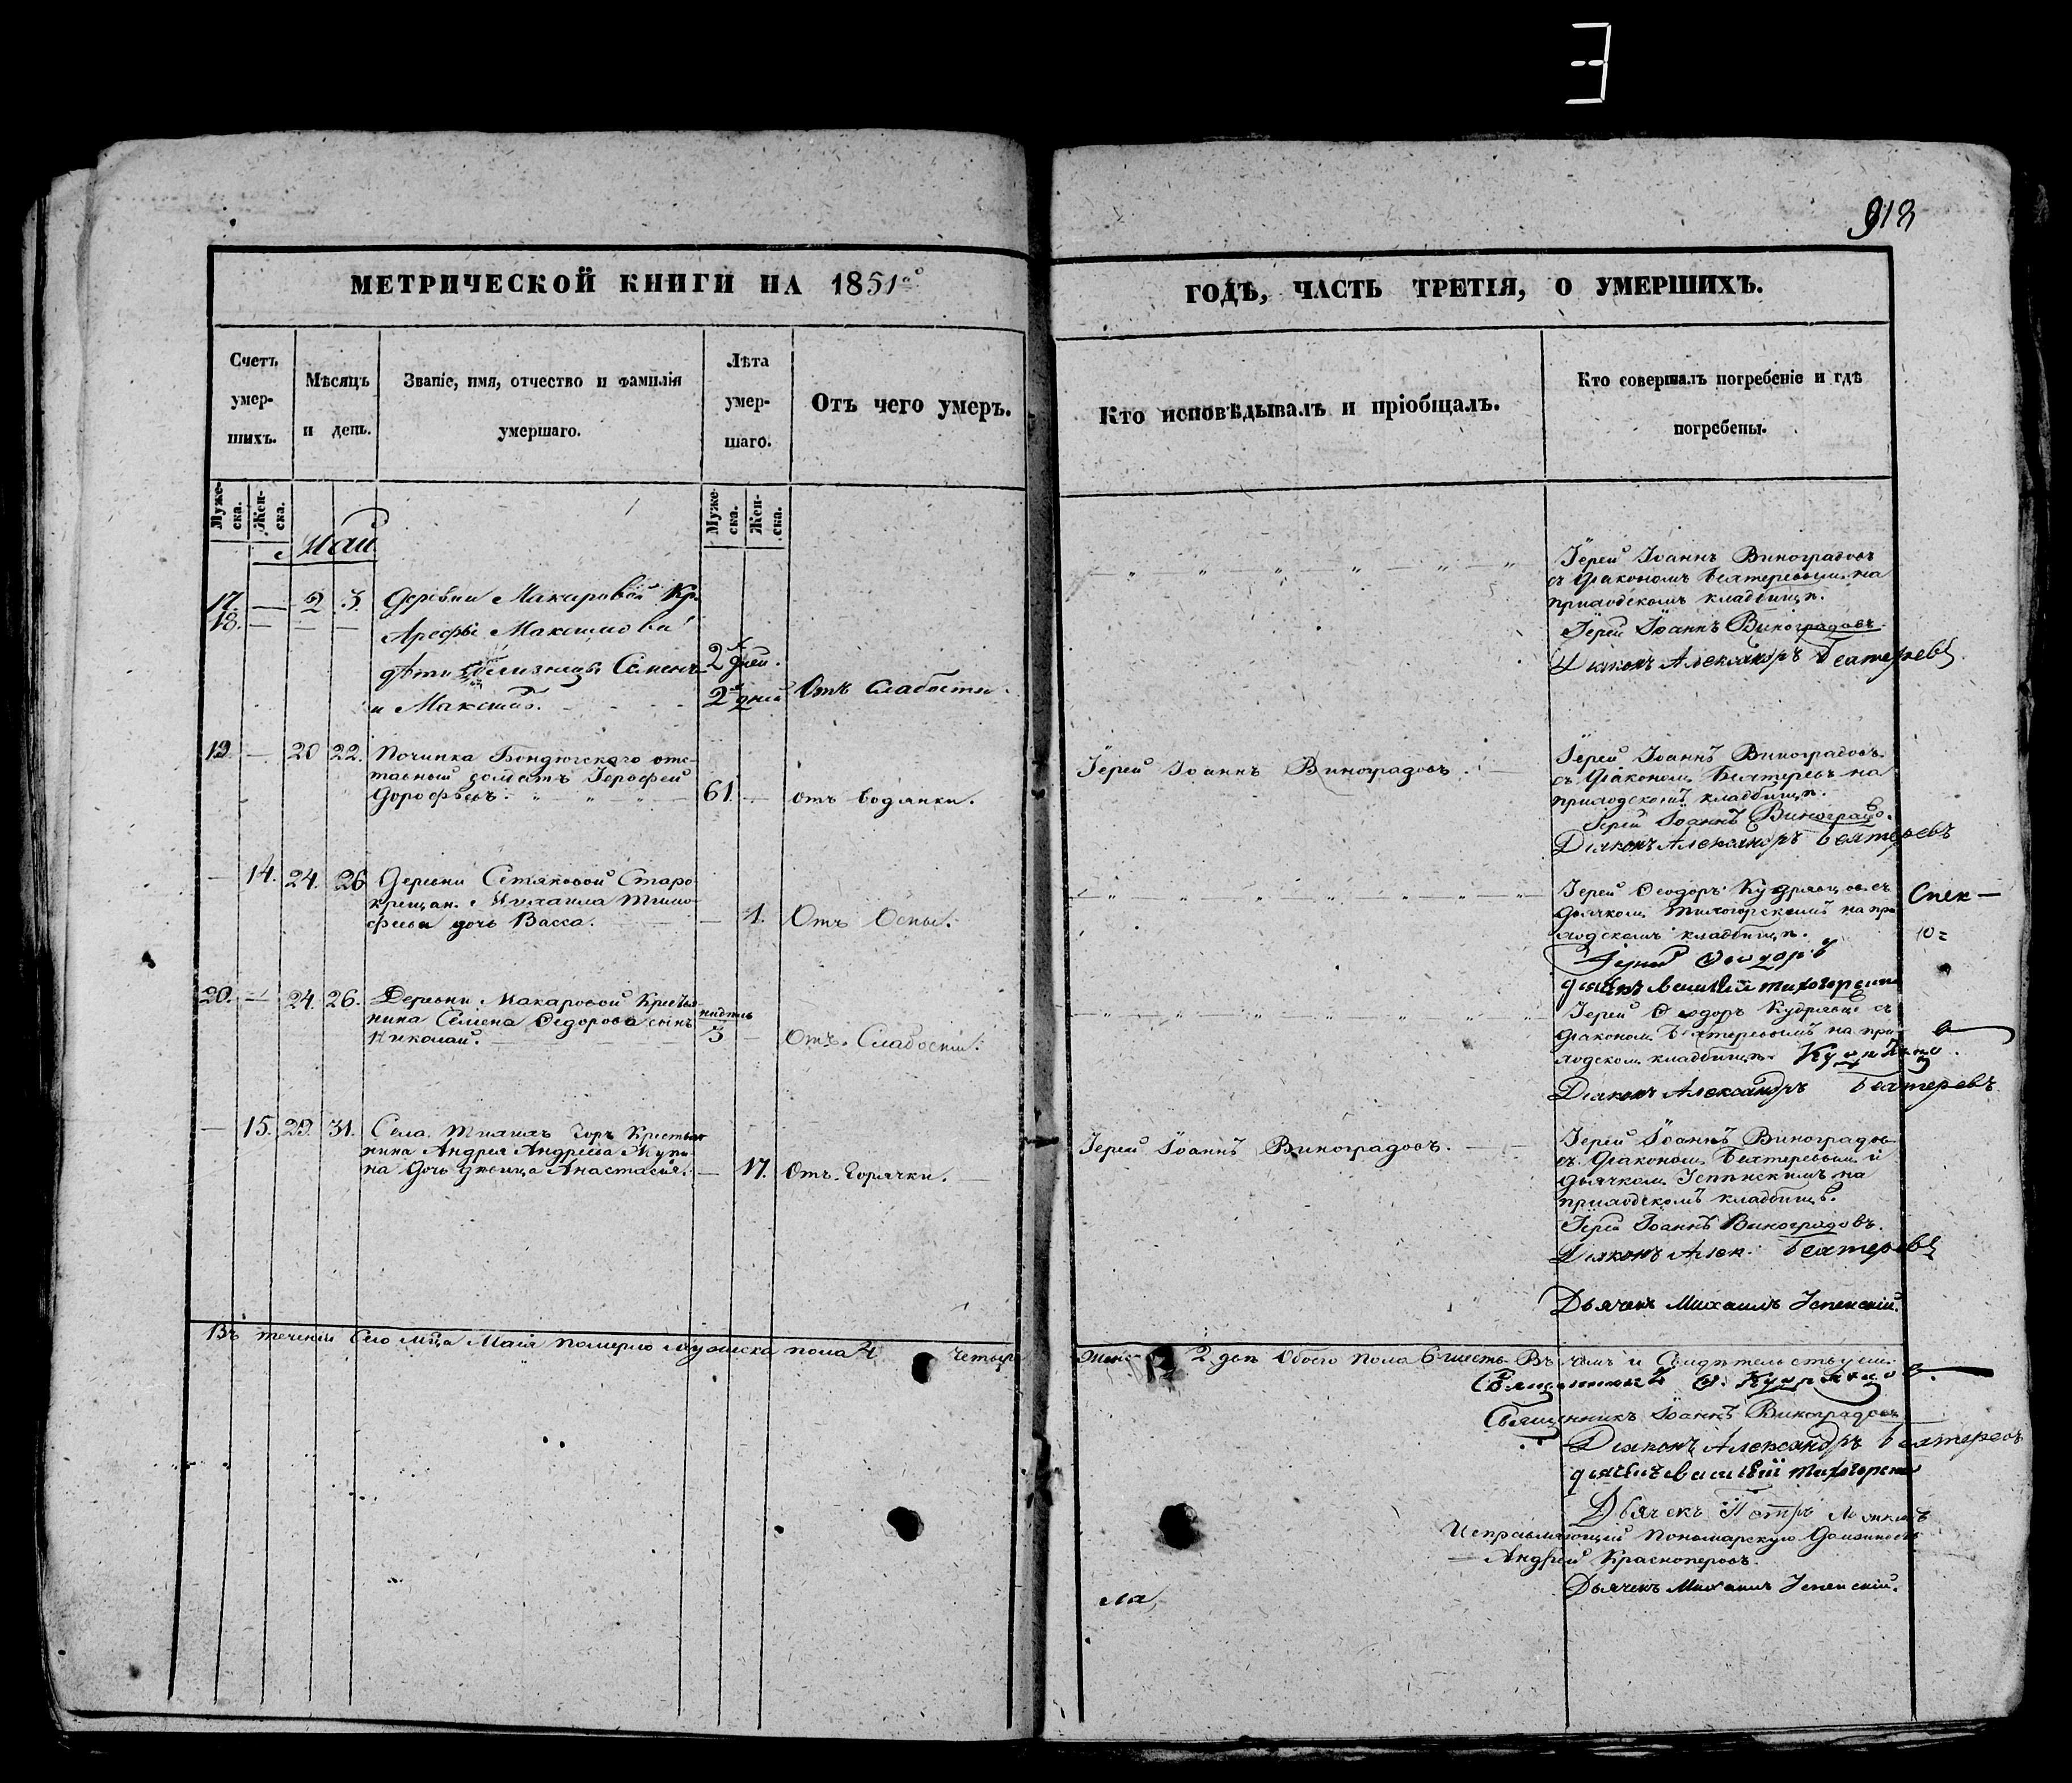 918
МЕТРИЧЕСКОЙ КНИГИ НА 1851го
ГОДѢ, ЧАСТЬ ТРЕТІЯ, О УМЕРШИХЪ.
Счетъ умер-шихъ.
Мѣсяцъ и день.
Званіе, имя, отчество и фамилія умершаго.
Лѣта умер-шаго.
Отъ чего умеръ.
Кто исповѣдывалъ и пріобщалъ.
Кто совершалъ погребеніе и гдѣ погребены.
Муже-ска.
Жен-ска.
Муже-ска.
Жен-ска.
Май
17. — 2 3. Деревни Макаровой Кр.
18. — — —
Арефы Максимова
дѣти близнецы Семенъ 2 дней.
и Максимъ. 2 дней Отъ слабости.
Іерей Іоаннъ Виноградовъ
съ діакономъ Бехтеревымъ на
приходскомъ кладбищѣ.
Іерей Іоаннъ Виноградовъ.
Діаконъ Александръ Бехтеревъ
19. — 20 22. Починка Бондюгскаго отс-
тавный солдатъ Іерофей
Дорофѣевъ. 61. — отъ водянки.
Іерей Іоаннъ Виноградовъ.
Іерей Іоаннъ Виноградовъ
съ діакономъ Бехтеревъ на
приходскомъ кладбищѣ.
Іерей Іоаннъ Виноградо.
Діаконъ Александръ Бехтеревъ
— 14. 24. 26 Деревни Сетяковой Старо
крещен. Михаила Тимо-
феева дочь Васса. — 1. Отъ Оспы.
Іерей Ѳеодоръ Кудрявцов. съ
дьячком. Тихогорскимъ на при
ходскомъ кладбищѣ.
Іерей Ѳеодоръ
дьячекъ василій тихогорскій
20. — 24. 26. Деревни Макаровой Крестья-
нина Семена Ѳедорова сынъ
Николай. недѣль 3 — Отъ Слабости.
Іерей Ѳеодоръ Кудрявцо съ
діаконом. Бехтеревымъ на при-
ходском. кладбищѣ.
Діаконъ Александръ Бехтеревъ
— 15. 29. 31. Села Тихихъ Горъ Крестья
нина Андрея Андреева
на дочь дѣвица Анастасія. — 17. Отъ Горячки.
Іерей Іоаннъ Виноградовъ.
Іерей Іоаннъ Виноградов
съ діаконом. Бехтеревым. и
дьячком. на
приходскомъ кладбищѣ.
Іерей Іоаннъ Виноградовъ.
Діаконъ Алек. Бехтеревъ
Дьячекъ Михаилъ
Въ теченіи Сего мца Маія померло мужеска пола 4 четыре
женс 2 две Обоего пола 6 шесть. Въ чемъ и Свидѣтельствуем.
Священникъ Ѳ. Кудрявцов
Священникъ Іоаннъ Виноградовъ
Діаконъ Александръ Бехтеревъ
дьячекъ василій тихогорскій
Дьячекъ Петръ
Исправляющій Пономарскую Должность
Андрей Красноперовъ.
Дьячекъ Михаилъ
ла,